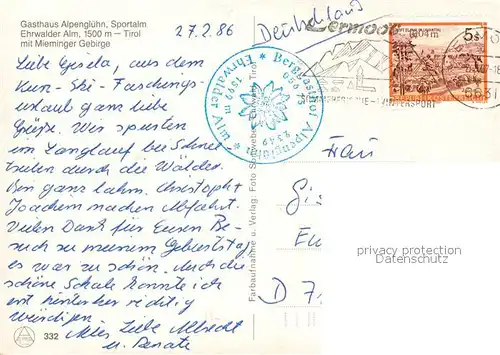 Gasthaus Alpenglühn, Sportalm
Ehrwalder Alm, 1500 m – Tirol
mit Mieminger Gebirge
27.2.86
Deutschland
Liebe Gisela, aus dem
Kurz-Ski-Faschings-
urlaub ganz liebe
Grüße. Wir spurten
im Langlauf bei Schnee-
treiben durch die Wälder.
Bin ganz lahm. Christoph +
Joachim machen Abfahrt.
Vielen Dank für Euren Be-
such zu meinem Geburtstag,
es war so schön. Auch die
schöne Schale konnte ich
erst hinterher richtig
würdigen.
Alles Liebe Albrecht
u. Renate
332
Berggasthof Alpenglühn
Ehrwalder Alm
1499 m
Farbaufnahme u. Verlag: Foto Somweber, Ehrwald, Tirol
Lermoos
1004 m
WINTERSPORT
5s
6631
Frau
D 7
privacy protection
Datenschutz